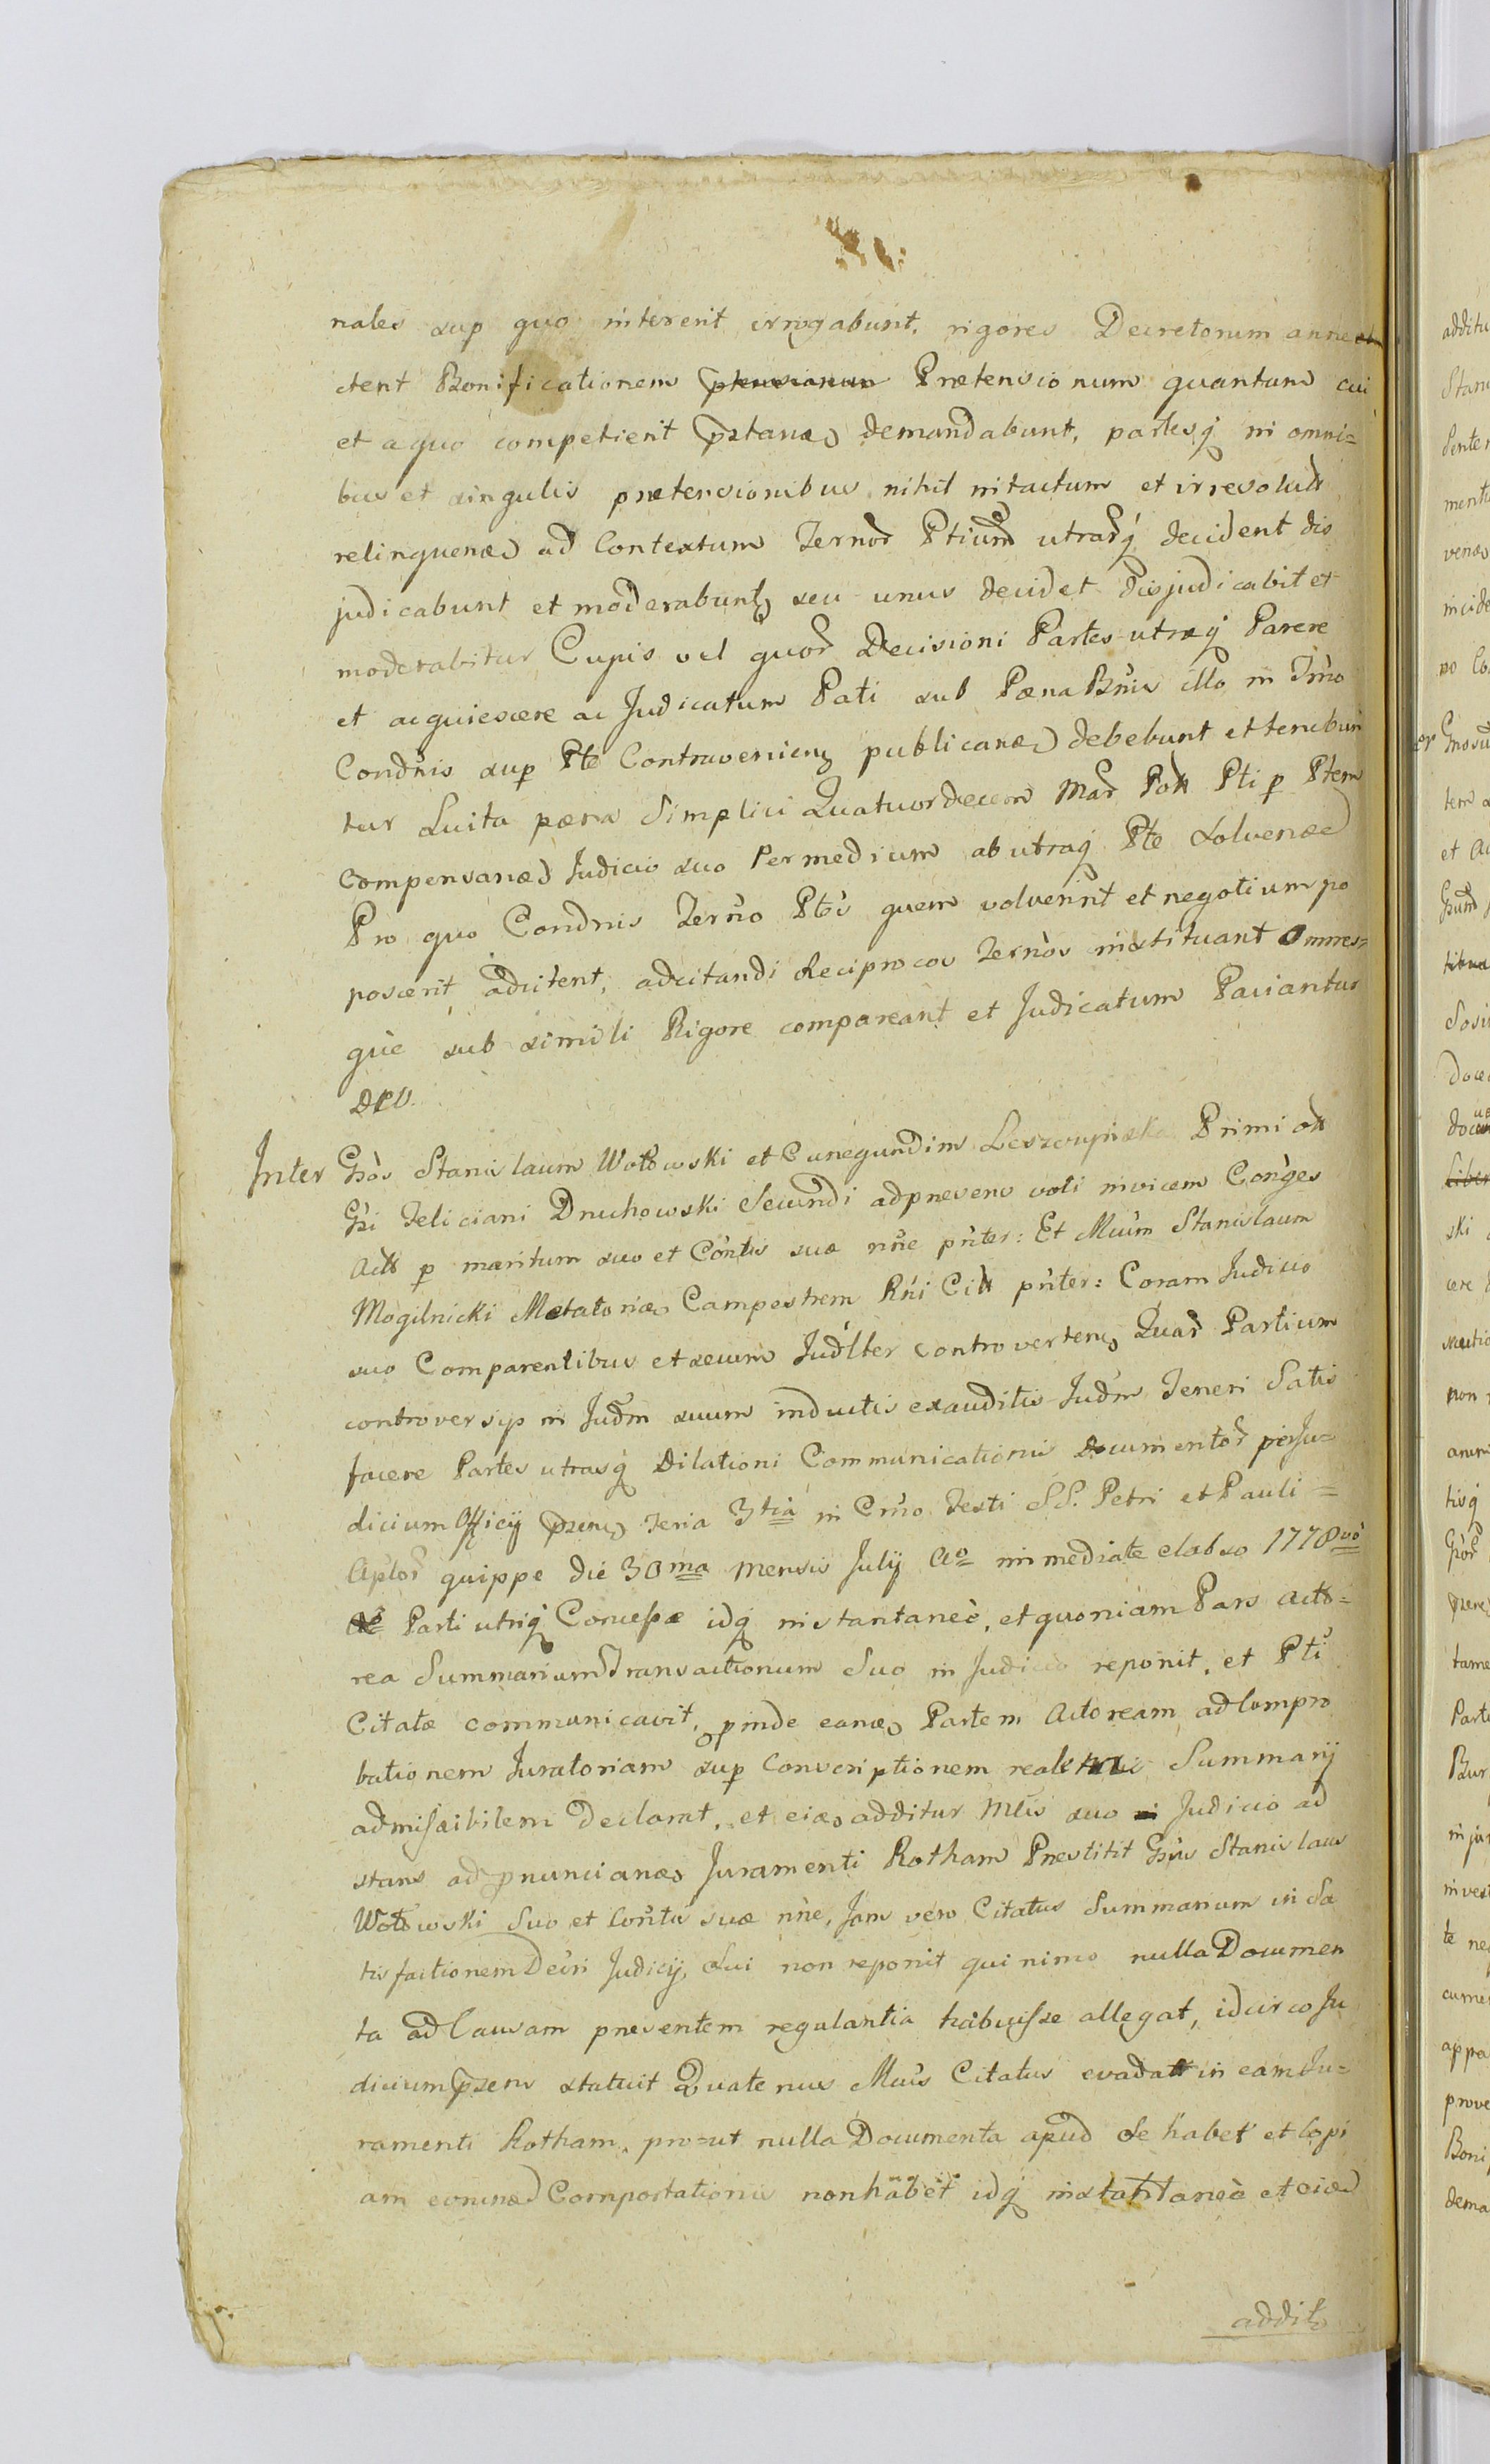 nales sup quo intererit irrogabunt, rigores Decretorum anne
ctent Bonificationem Prætensionum quantum cui
et a quo competierit pstanđ demandabunt, partesq́ in omni=
bus et singulis prætensionibus nihil intactum et irresolutt
relinquenđ ad Contextum Ternoř Ptium utrař́q́ decident dis
judicabunt et moderabunt, seu unus decidet disjudicabit et
moderabitur Cujus vel quoř Decisioni Partes utræq́ Parere
et acquiescere ac Judicatum Pati sub Pæna Bnis illo in Tmo
Condnis sup Pte Contravenien publicanđ debebunt et tenebun
tur Luita pæna Simplici Quatuordecem Mař Poll Pti p Ptem
compensanđ Judicio suo Per medium ab utraq́ Pte Solvenđ
Pro quo Condnis Terno Ptes quem voluerint et negotium po
poscerit adcitent, adcitandi Reciprocos Ternos instituant Omnes=
què sub simili Rigore compareant et Judicatum Paciantur
Inter Gsos Stanislaum Wołowski et Cunegundim Primi ott
Gsi Feliciani Druchowski Secundi adpresens voti invicem Conges
Actt p maritum suo et Contis suæ nne pnter: Et Mum Stanislaum
Mogilnicki Metatoriæ Campestrem Rni Citt pnter: Coram Judicio
suo Comparentibus et secum Judlter controverten, Quař Partium
controversijs in Judm suum inductis exauditis Judm Teneri Satis
facere Partes utrasq́ Dilationi Communicationis Documentoř per Ju=
dicium Officij psens Feria 3tiâ in Crno Festi SS. Petri et Pauli =
Aploř quippe die 30ma Mensis Julij Ao immediate elabso 1778vo
Parti utriq́ Concessæ idq́ instantaneè, et quoniam Pars Acto=
rea Summarium Transactionum Suo in Judicio reponit, et Pti
Citatæ communicavit, pinde eanđ Partem Actoream ad Compro
bationem Juratoriam sup Conscriptionem Summarij
admissibilem Declarat, et eiđ additur Mtis suo Judicio ad
stans ad pnuncianđ Juramenti Rotham Præstitit Gsus Stanislaus
Wołowski Suo et Contis suæ nne, Jam vero Citatus Summarium in Sa
tisfactionem Decri Judicij Sui non reponit quinimo nulla Documen
ta ad Causam presentem regulantia habuisse allegat, idcirco Ju
dicium psens statuit Quatenus Mus Citatus evadatt in eam Ju=
ramenti Rotham, pro=ut nulla Documenta apud Se habet et Copi
am eorunđ Comportationis non habet idq́ instantaneè et eiđ
addit